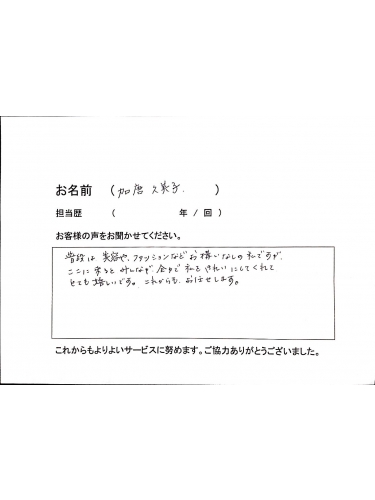 お名前 （加唐 久美子. ）
担当歴 （ 年 / 回 ）
お客様の声をお聞かせください。
普段は 美容や、ファッションなどお構いなしの私ですが、
ここに来ると みんなが 全力で 私を きれいに してくれて
とても嬉しいです。これからも、お任せします。
これからもよりよいサービスに努めます。ご協力ありがとうございました。